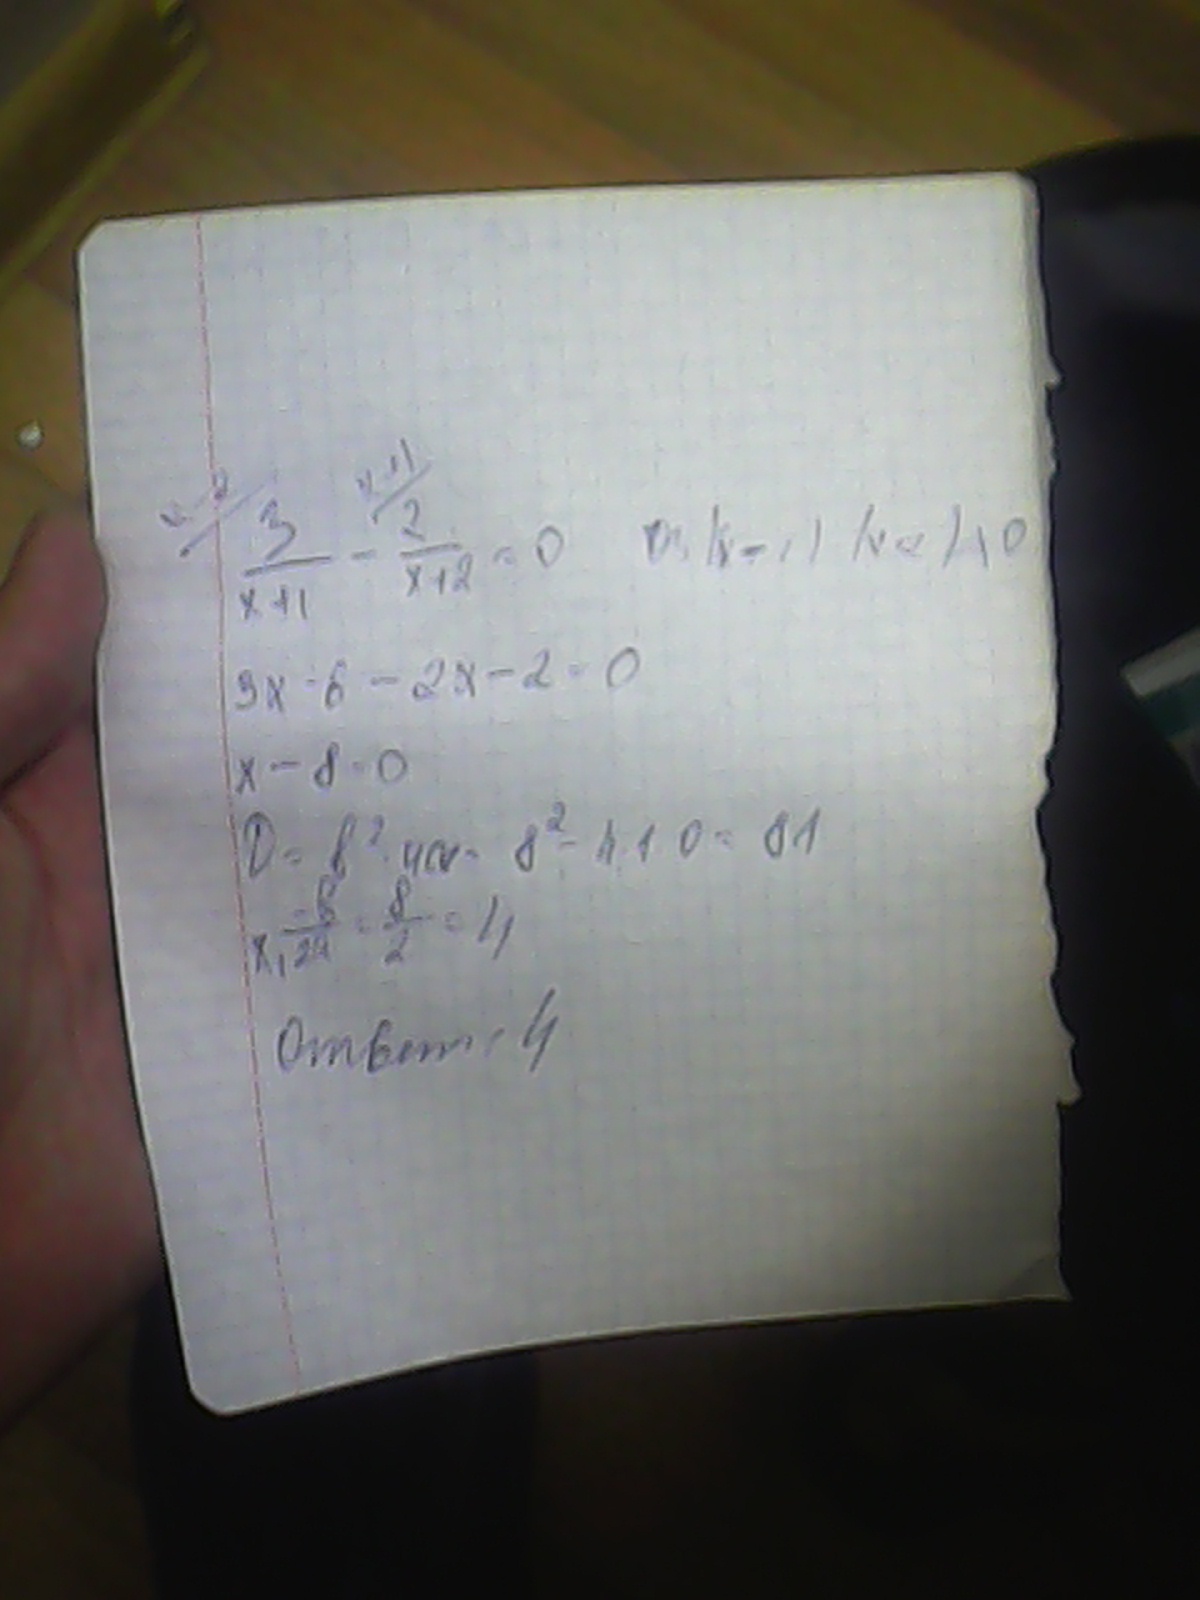 x+1
3/(x+1) - 2/(x+2) = 0
3x-6-2x-2=0
x-8=0
D= b²-4ac= 8²-4·1·0= 81
x₁ -b/2a = 8/2 = 4
Ответ: 4